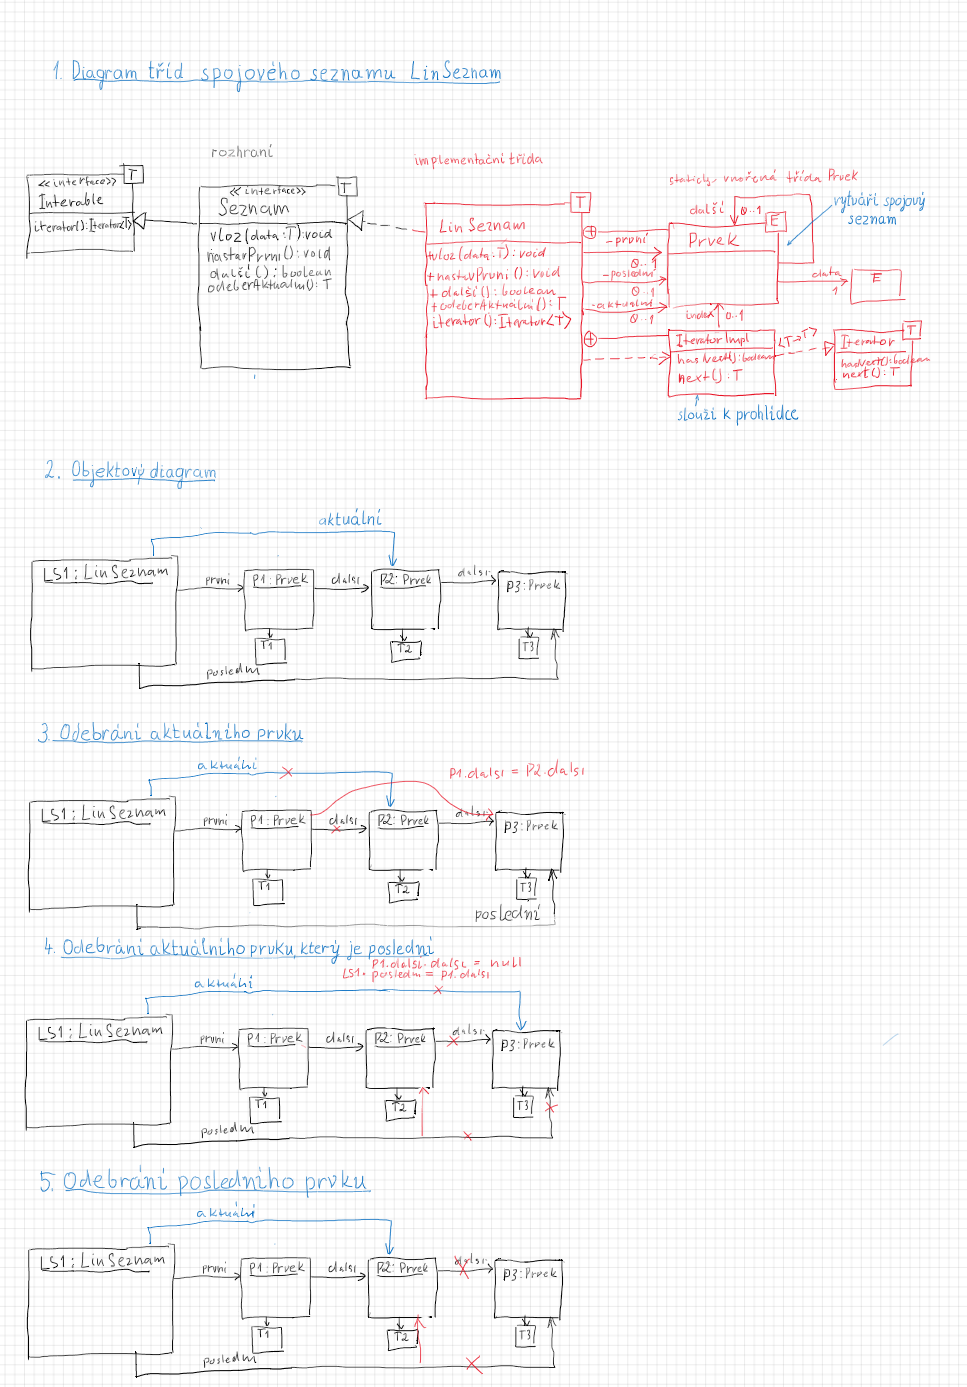 1. Diagram tříd spojového seznamu LinSeznam
rozhraní
implementační třída
staticky vnořená třída Prvek
vytváří spojový
seznam
T
<<interface>>
Interable
iterator():Iterator<T>
T
<<interface>>
Seznam
vloz(data:T):void
nastavPrvni():void
další():boolean
odeberAktualni():T
T
LinSeznam
+vloz(data:T):void
+nastavPrvni():void
+další():boolean
+odeberAktuální():T
iterator():Iterator<T>
-první
0..1
-poslední
0..1
-aktualní
0..1
další
0..1
E
Prvek
data
1
E
index
0..1
IteratorImpl
hasNext():boolean
next():T
<T->T>
T
Iterator
hasNext():boolean
next():T
slouží k prohlídce
2. Objektový diagram
aktuální
LS1:LinSeznam
první
P1:Prvek
dalsi
P2:Prvek
dalsi
P3:Prvek
T1
T2
T3
posledni
3. Odebrání aktuálního prvku
aktuální
P1.dalsi = P2.dalsi
LS1:LinSeznam
první
P1:Prvek
dalsi
P2:Prvek
dalsi
P3:Prvek
T1
T2
T3
poslední
4. Odebrání aktuálního prvku, který je poslední
P1.dalsi.dalsi = null
LS1.posledni = P1.dalsi
aktuální
LS1:LinSeznam
první
P1:Prvek
dalsi
P2:Prvek
dalsi
P3:Prvek
T1
T2
T3
posledni
5. Odebrání posledního prvku
aktuální
LS1:LinSeznam
první
P1:Prvek
dalsi
P2:Prvek
dalsi
P3:Prvek
T1
T2
T3
posledni